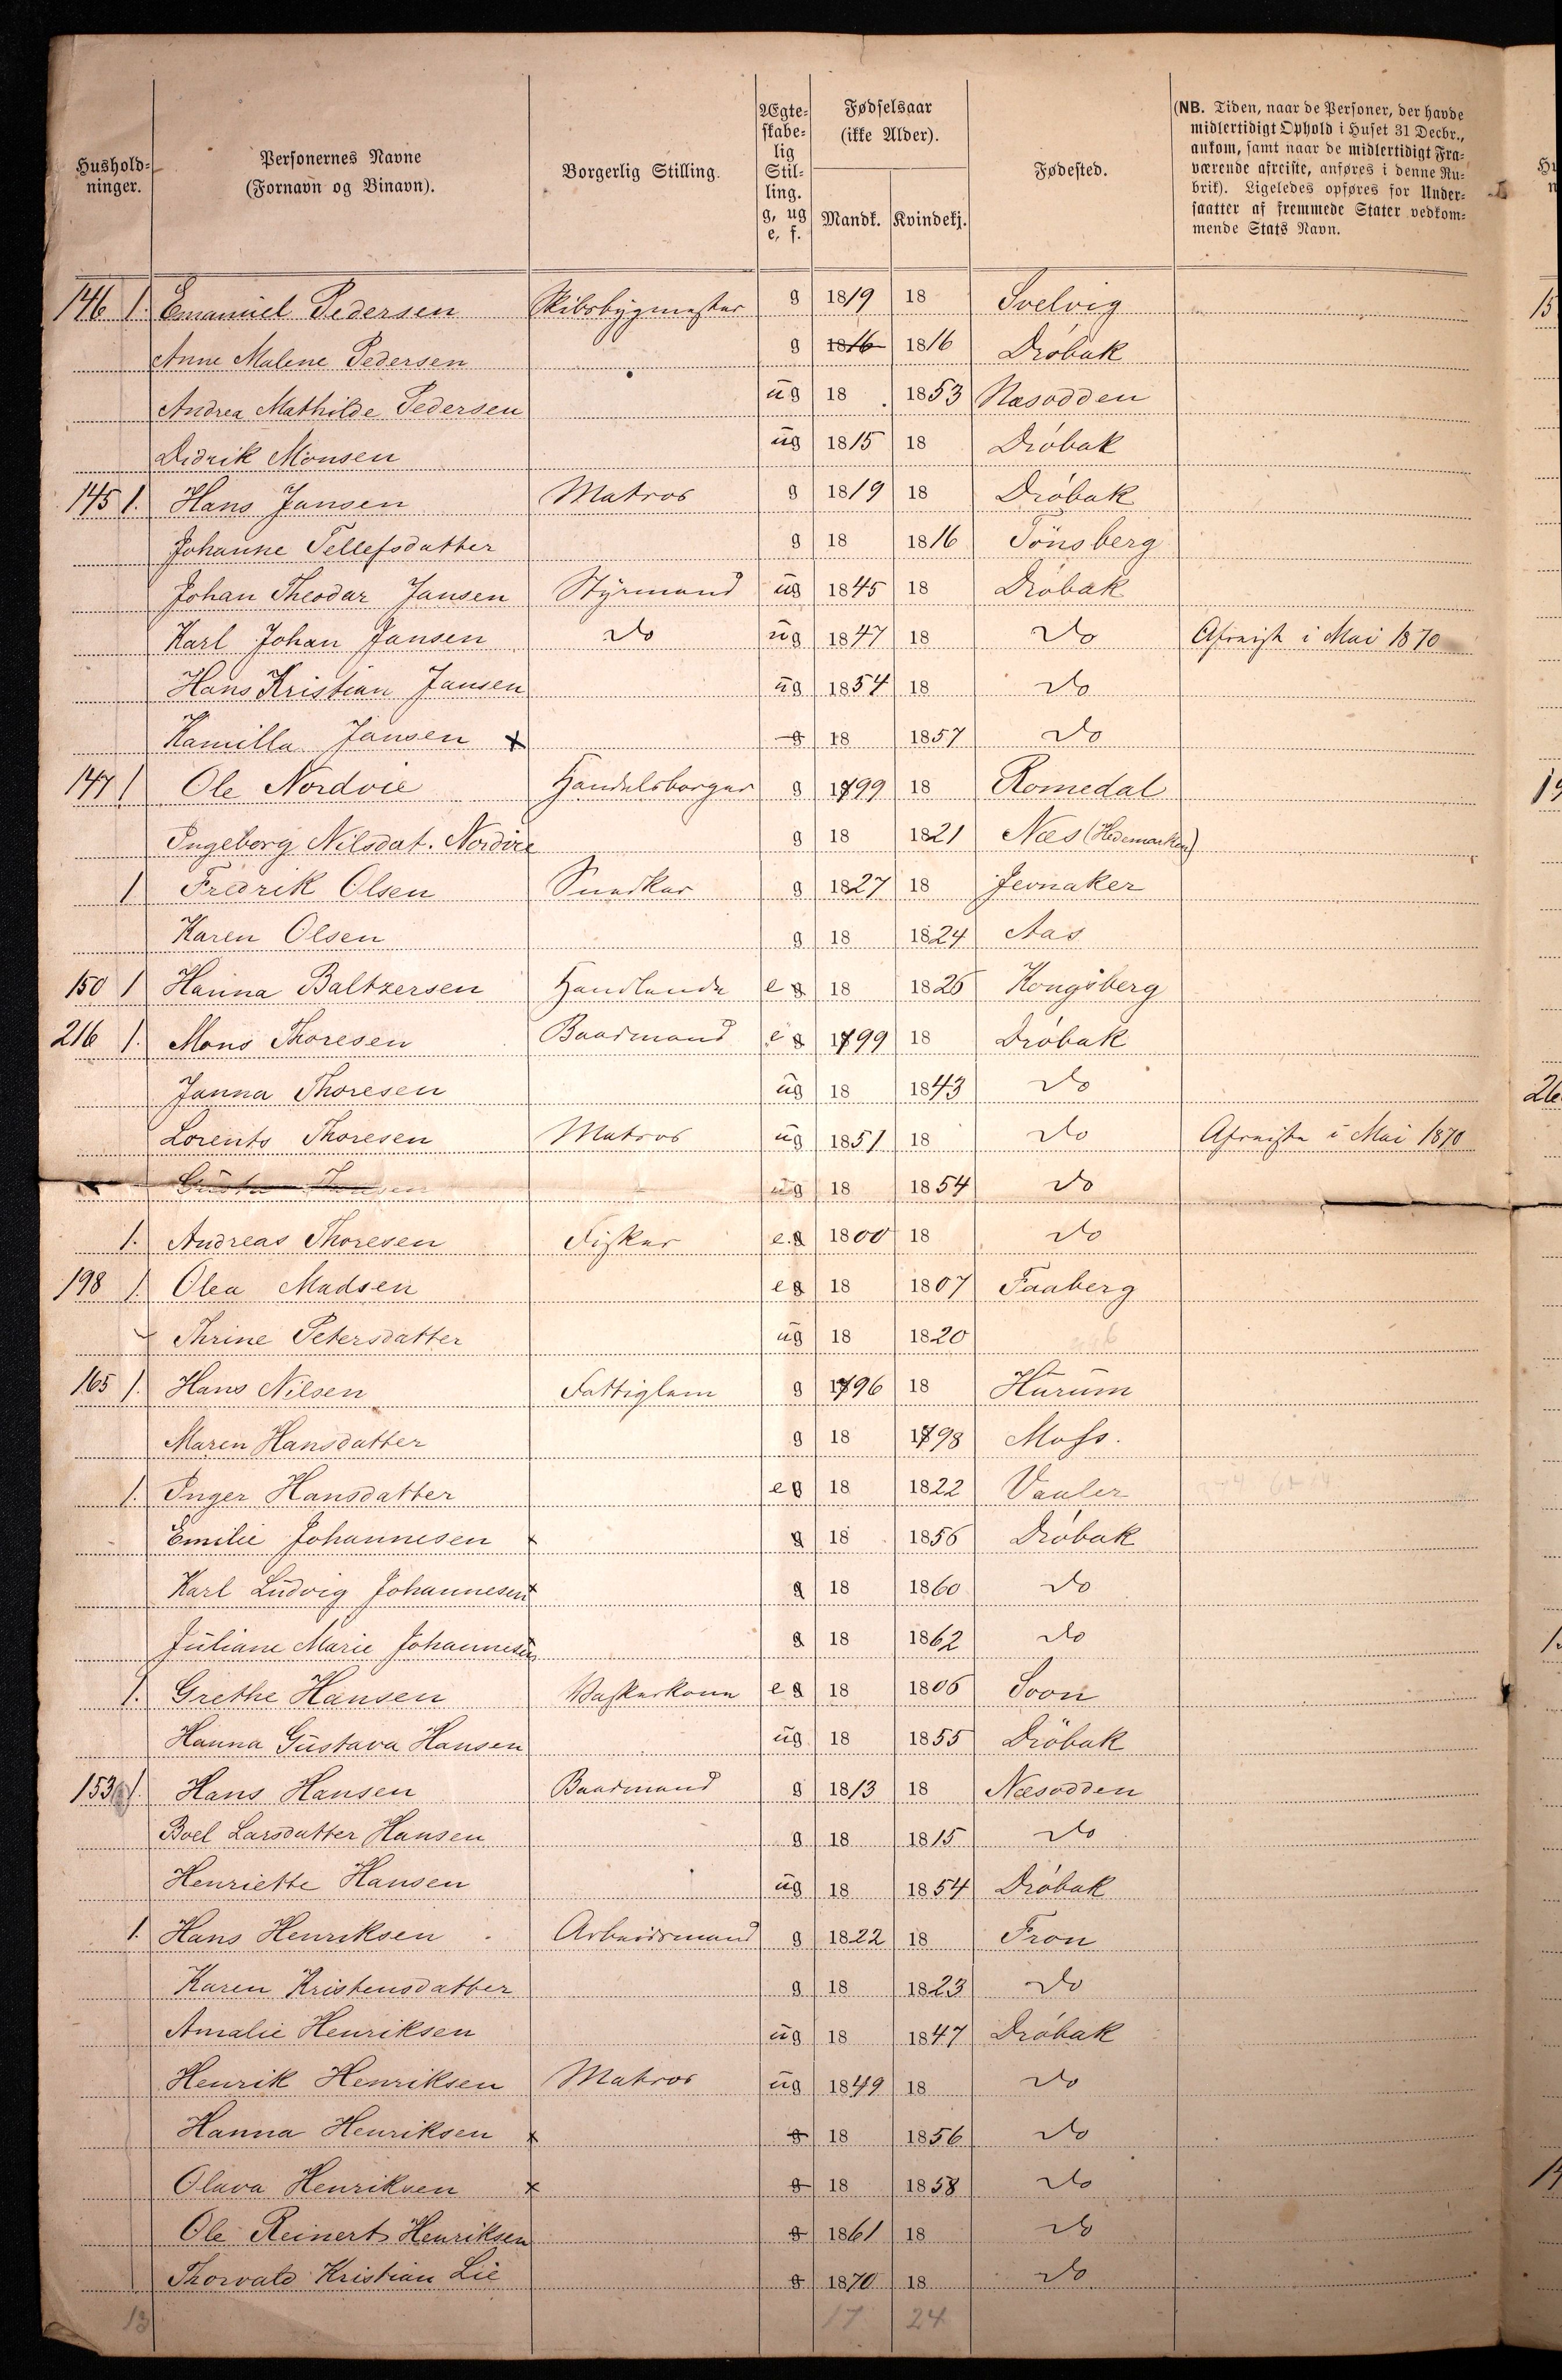 Hushold-
ninger.
Personernes Navne
(Fornavn og Binavn).
Borgerlig Stilling.
Ægte-
skabe-
lig
Stil-
ling.
g, ug
e, f.
Fødselsaar
(ikke Alder).
Mandk. Kvindekj.
Fødested.
(NB. Tiden, naar de Personer, der havde
midlertidigt Ophold i Huset 31 Decbr.,
ankom, samt naar de midlertidigt Fra-
værende afreiste, anføres i denne Ru-
brik). Ligeledes opføres for Under-
saatter af fremmede Stater vedkom-
mende Stats Navn.
146 1. Emanuel Pedersen Skibsbygmester g 1819 18 Svelvig
Anne Malene Pedersen g 1816 1816 Dröbak
Andrea Mathilde Pedersen ug 18 1853 Næsodden
Didrik Monsen ug 1815 18 Dröbak
145 1. Hans Jansen Matros g 1819 18 Dröbak
Johanne Tellefsdatter g 18 1816 Tönsberg
Johan Theodor Jansen Styrmand ug 1845 18 Dröbak
Karl Johan Jansen Do ug 1847 18 Do Afreist i Mai 1870
Hans Kristian Jansen ug 1854 18 Do
Kamilla Jansen x g 18 1857 Do
147 1 Ole Nordvie Handelsborger g 1799 18 Romedal
Ingeborg Nilsdat. Nordvie g 18 1821 Næs (Hedemarken)
1 Fredrik Olsen Snedker g 1827 18 Jevnaker
Karen Olsen g 18 1824 Aas
150 1 Hanna Baltzersen Handlende e g 18 1826 Kongsberg
216 1. Mons Thoresen Baadmand e g 1799 18 Dröbak
Janna Thoresen ug 18 1843 Do
Lorents Thoresen Matros ug 1851 18 Do Afreiste i Mai 1870
ug 18 1854 Do
1. Andreas Thoresen Fisker e. g 1800 18 Do
198 1. Olea Madsen e g 18 1807 Faaberg
Thrine Petersdatter ug 18 1820
165 1. Hans Nilsen Fattiglem g 1796 18 Hurum
Maren Hansdatter g 18 1798 Moss.
1. Inger Hansdatter e g 18 1822 Vaaler
Emilie Johannesen x g 18 1856 Dröbak
Karl Ludvig Johannesen x g 18 1860 Do
Juliane Marie Johannesen g 18 1862 Do
1. Grethe Hansen Vaskerkone e g 18 1806 Soon
Hanna Gustava Hansen ug 18 1855 Dröbak
153 1. Hans Hansen Baadmand g 1813 18 Næsodden
Boel Larsdatter Hansen g 18 1815 Do
Henriette Hansen ug 18 1854 Dröbak
1. Hans Henriksen Arbeidsmand g 1822 18 Fron
Karen Kristensdatter g 18 1823 Do
Amalie Henriksen ug 18 1847 Dröbak
Henrik Henriksen Matros ug 1849 18 Do
Hanna Henriksen x g 18 1856 Do
Olava Henriksen x g 18 1858 Do
Ole Reinert Henriksen g 1861 18 Do
Thorvald Kristian Lie g 1870 18 Do
13 17 24